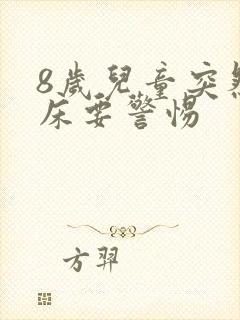 8歲兒童突然
床要警惕
方羿